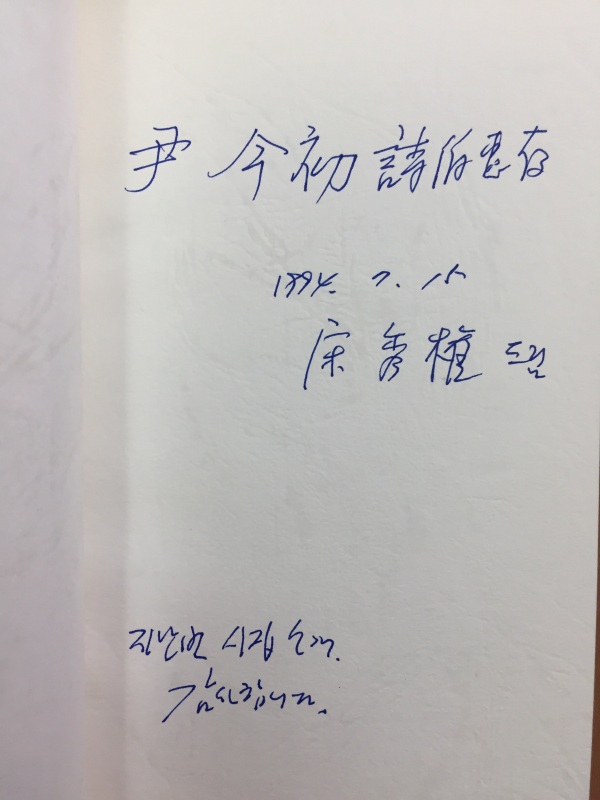 尹 今初 詩伯惠存
1994. 7. 15
宋秀權 드림
지난번 시집
감사합니다.